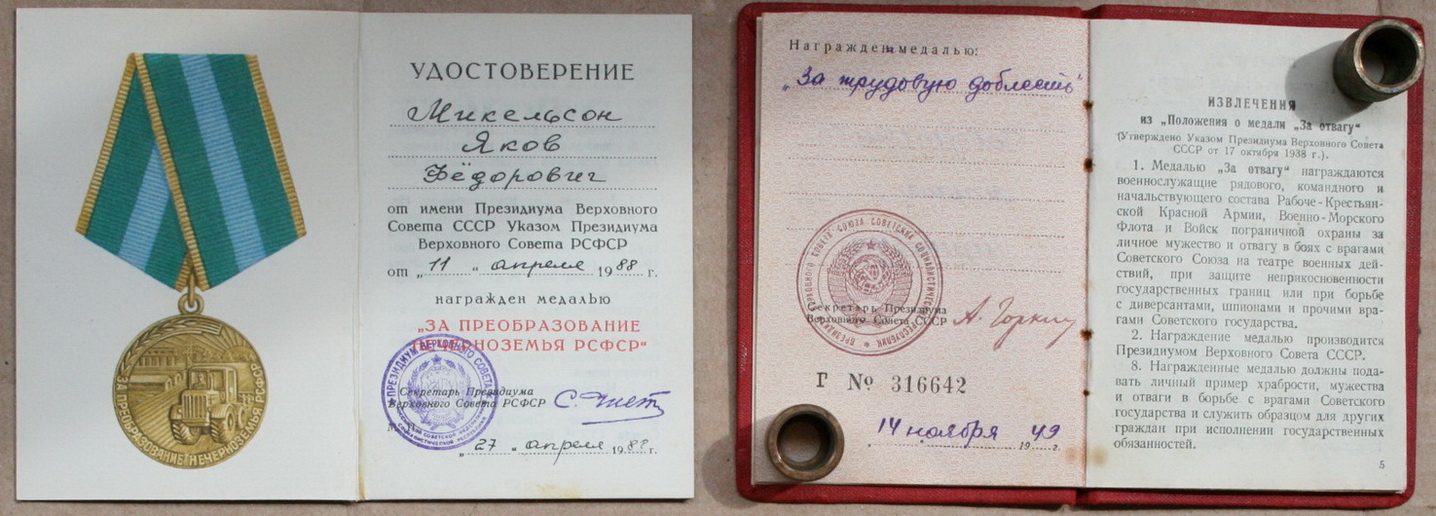 УДОСТОВЕРЕНИЕ
Микельсон
Яков
Фёдорович
от имени Президиума Верховного
Совета СССР Указом Президиума
Верховного Совета РСФСР
от „11 “ апреля 1988 г.
награжден медалью
„ЗА ПРЕОБРАЗОВАНИЕ
НЕЧЕРНОЗЕМЬЯ РСФСР“
Секретарь Президиума
Верховного Совета РСФСР
„27 “ апреля 1988 г.
ЗА ПРЕОБРАЗОВАНИЕ НЕЧЕРНОЗЕМЬЯ РСФСР
ПРЕЗИДИУМ ВЕРХОВНОГО СОВЕТА
Награжден медалью:
„За трудовую доблесть“
Секретарь Президиума
Верховного Совета СССР
А. Горкин
Г № 316642
14 ноября 1949 г.
ИЗВЛЕЧЕНИЯ
из „Положения о медали „За отвагу“
(Утверждено Указом Президиума Верховного Совета
СССР от 17 октября 1938 г.).
1. Медалью „За отвагу“ награждаются
военнослужащие рядового, командного и
начальствующего состава Рабоче-Крестьян-
ской Красной Армии, Военно-Морского
Флота и Войск пограничной охраны за
личное мужество и отвагу в боях с врагами
Советского Союза на театре военных дей-
ствий, при защите неприкосновенности
государственных границ или при борьбе
с диверсантами, шпионами и прочими вра-
гами Советского государства.
2. Награждение медалью производится
Президиумом Верховного Совета СССР.
8. Награжденные медалью должны пода-
вать личный пример храбрости, мужества
и отваги в борьбе с врагами Советского
государства и служить образцом для других
граждан при исполнении государственных
обязанностей.
5